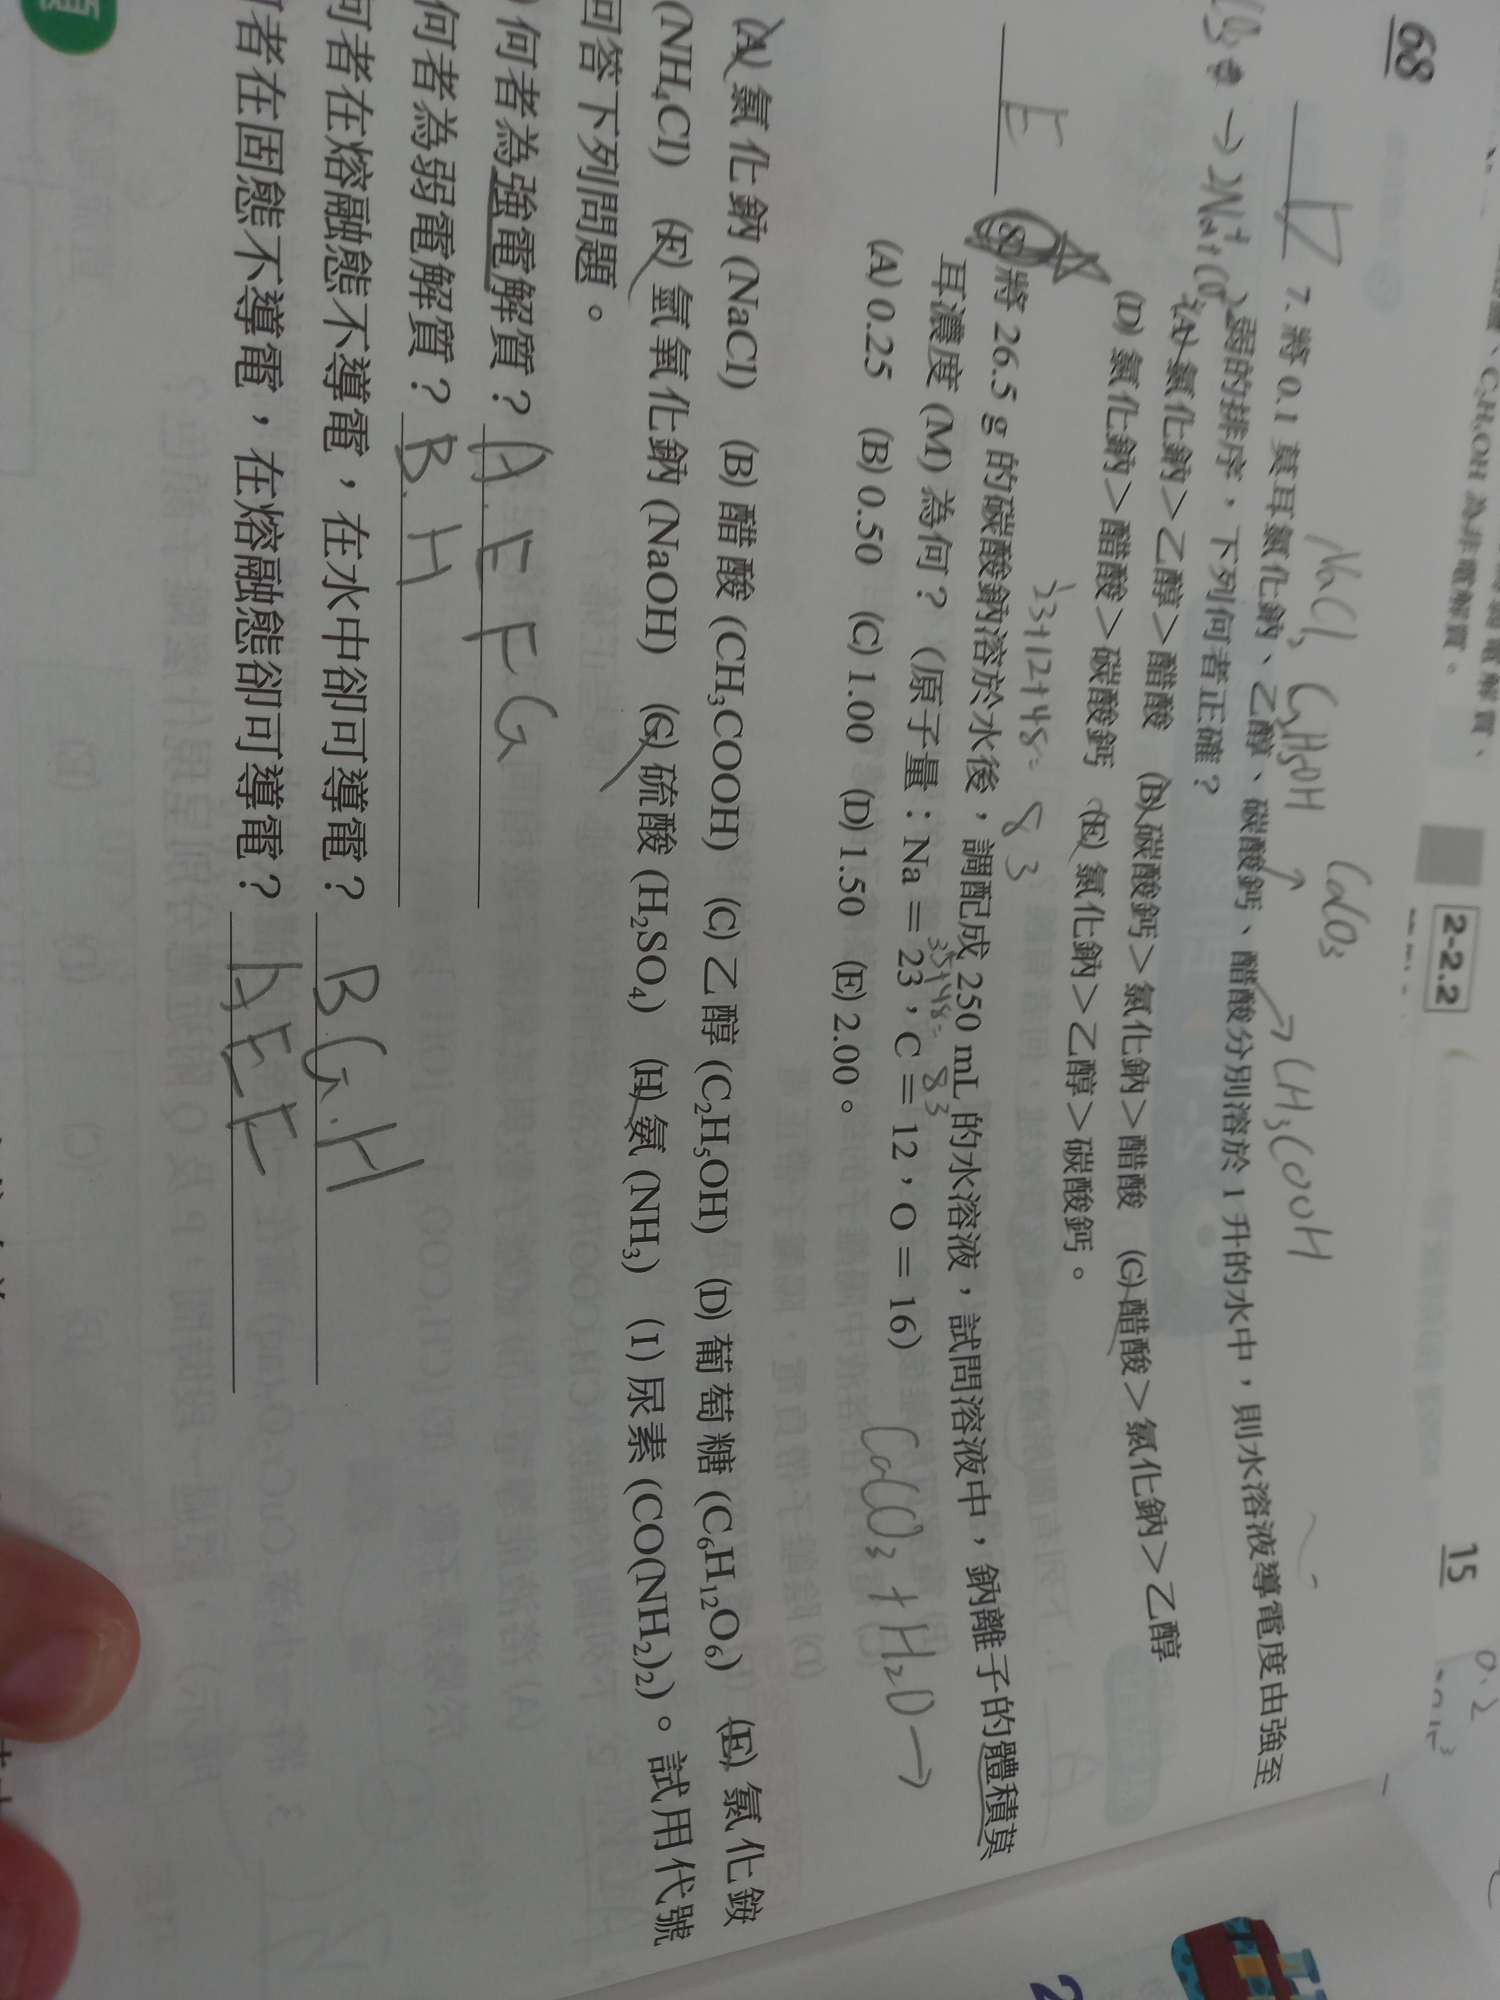 68
2-2.2
15
C₂H₅OH 為非電解質。
電解質、
NaCl, C₂H₅OH
CaCO₃
CH₃COOH
7. 將 0.1 莫耳氯化鈉、乙醇、碳酸鈣、醋酸分別溶於 1 升的水中,則水溶液導電度由強至
弱的排序,下列何者正確?
(A) 氯化鈉>乙醇>醋酸 (B) 碳酸鈣>氯化鈉>醋酸 (C) 醋酸>氯化鈉>乙醇
(D) 氯化鈉>醋酸>碳酸鈣 (E) 氯化鈉>乙醇>碳酸鈣。
23+12+48= 83
E
8. 將 26.5 g 的碳酸鈉溶於水後,調配成 250 mL 的水溶液,試問溶液中,鈉離子的體積莫
35+48= 83
耳濃度 (M) 為何?(原子量:Na=23,C=12,O=16)
(A) 0.25 (B) 0.50 (C) 1.00 (D) 1.50 (E) 2.00。
CaCO₃ + H₂O →
(A) 氯化鈉 (NaCl) (B) 醋酸 (CH₃COOH) (C) 乙醇 (C₂H₅OH) (D) 葡萄糖 (C₆H₁₂O₆) (E) 氯化銨
(NH₄Cl) (F) 氫氧化鈉 (NaOH) (G) 硫酸 (H₂SO₄) (H) 氨 (NH₃) (I) 尿素 (CO(NH₂)₂)。試用代號
回答下列問題。
何者為強電解質? A E F G
何者為弱電解質? B. H
何者在熔融態不導電,在水中卻可導電? B G. H
何者在固態不導電,在熔融態卻可導電? A E F